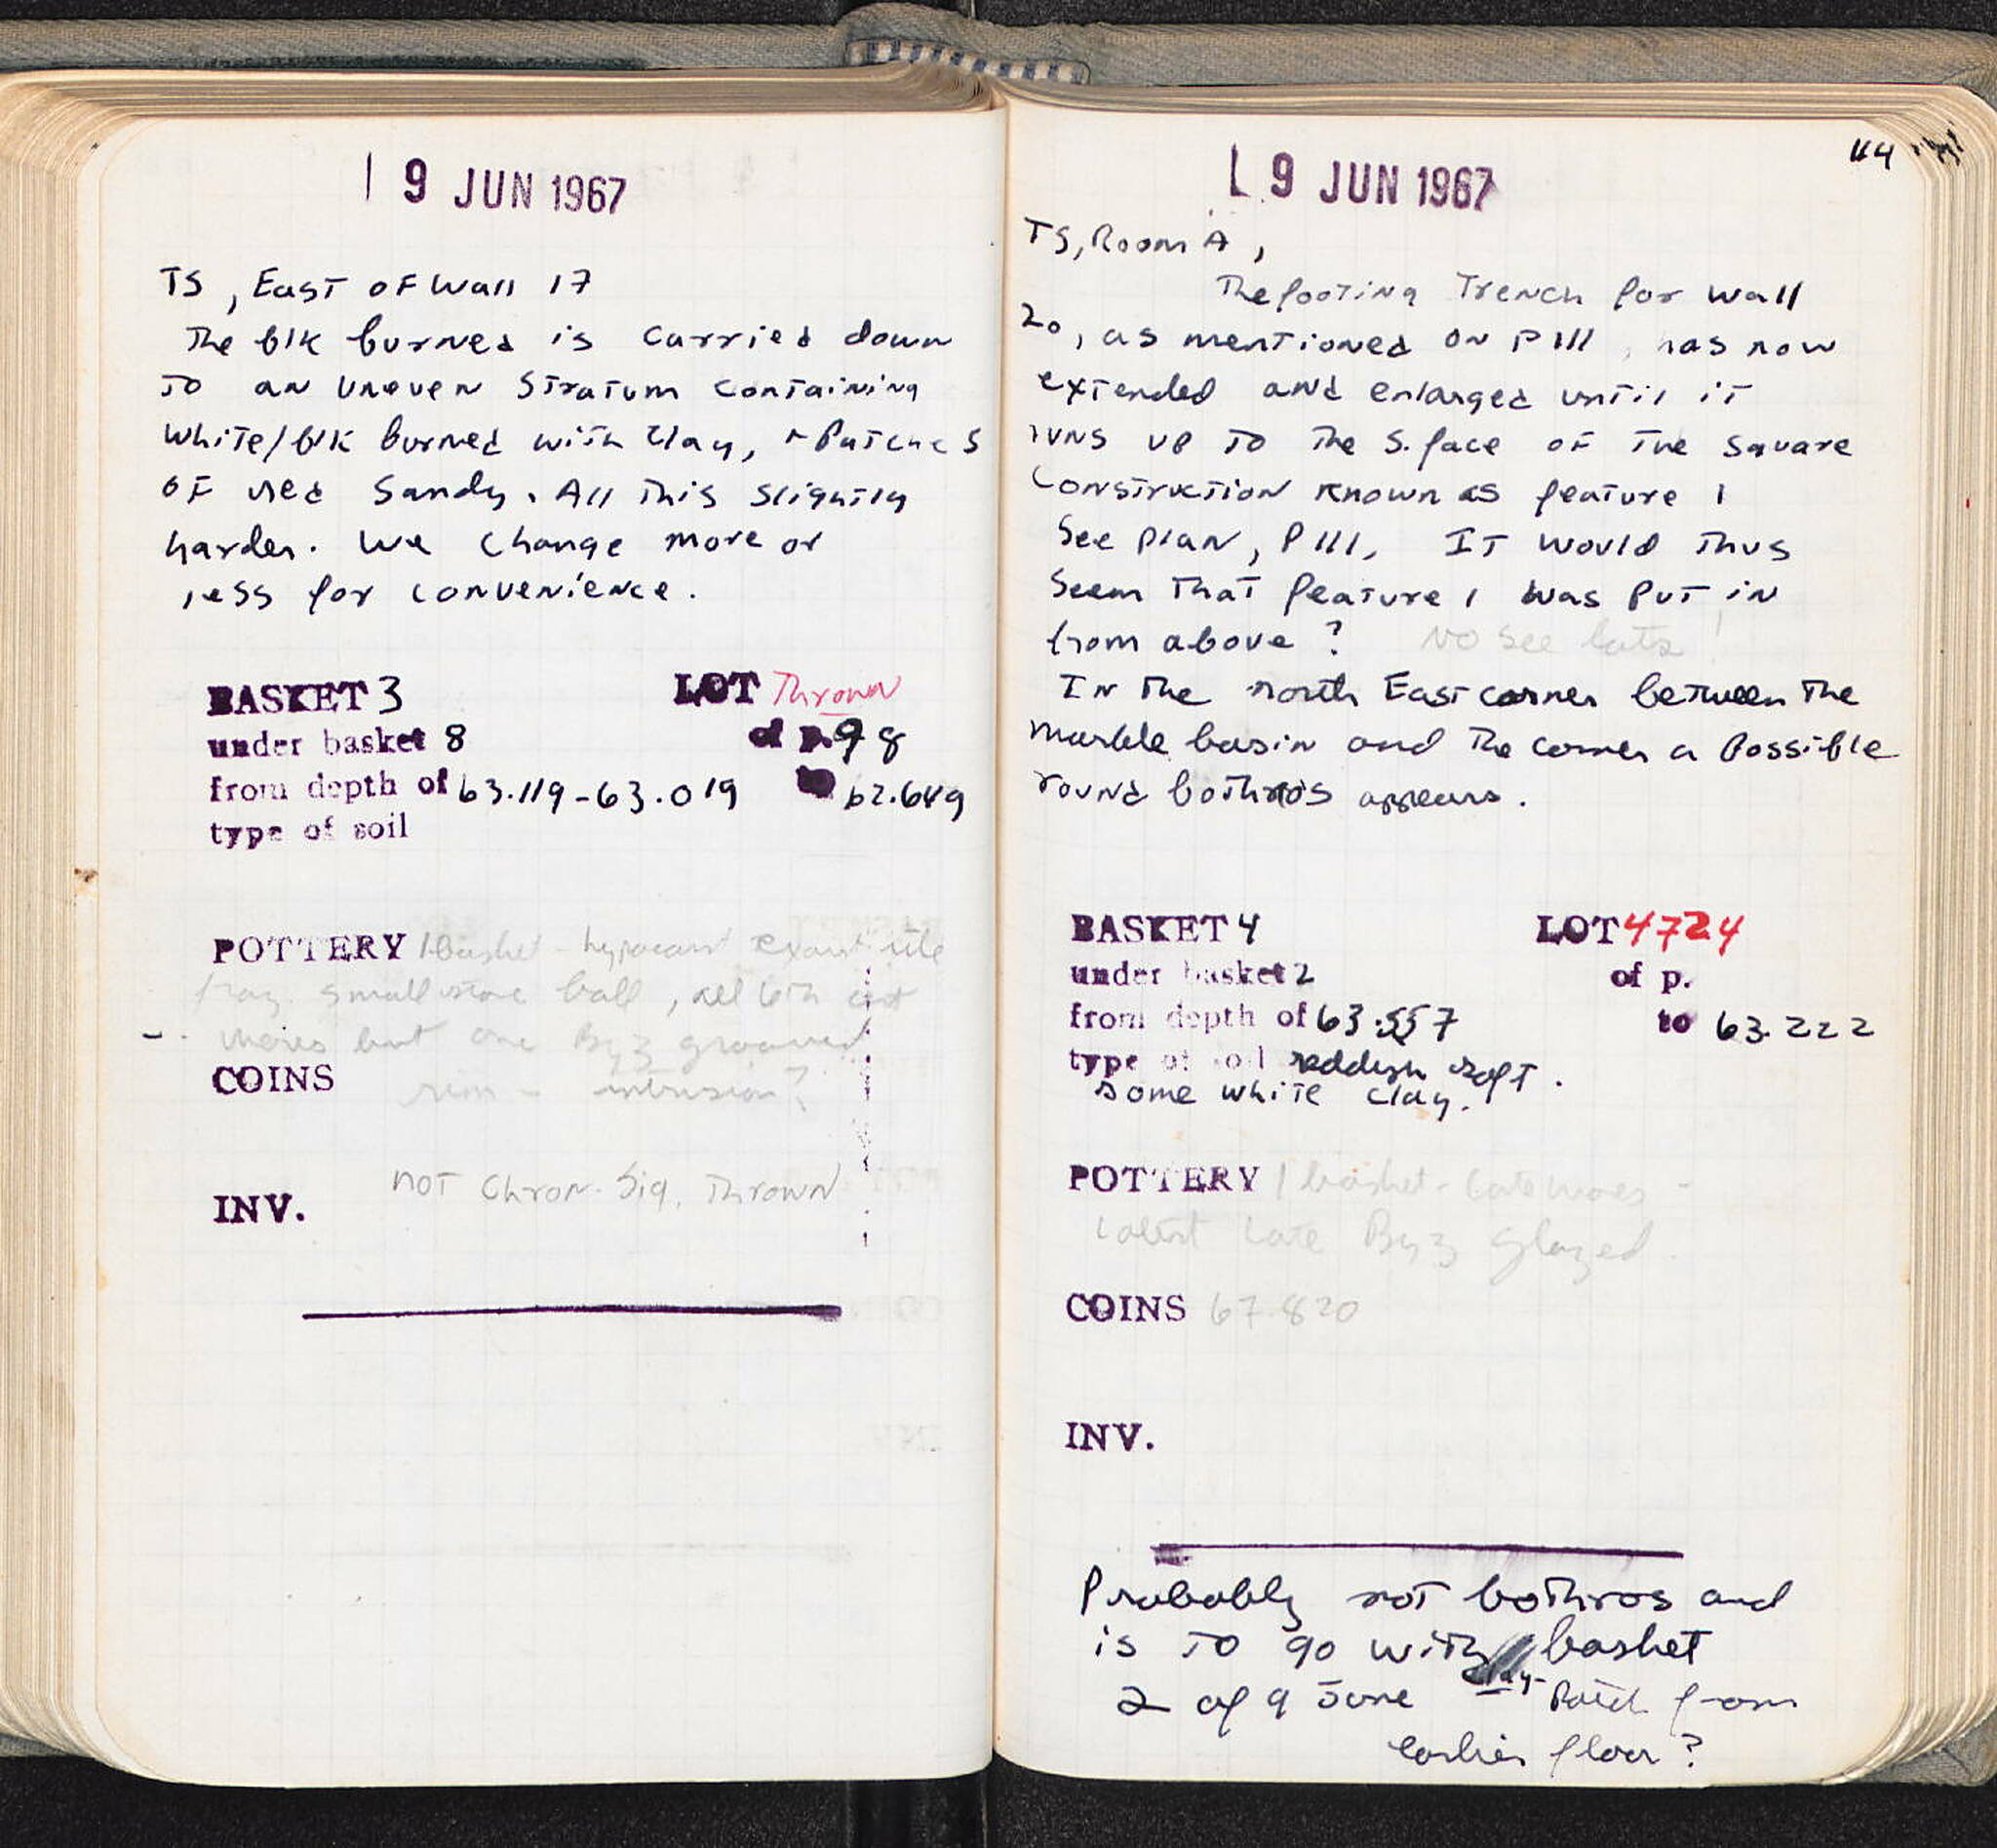 9 JUN 1967
TS, East of Wall 17
The blk burned is carried down
to an uneven stratum containing
white/blk burned with clay, + Patches
of red sandy. All this slightly
harder. We change more or
less for convenience.
BASKET 3 LOT Thrown
under basket 8 of p. 98
from depth of 63.119-63.019 to 62.649
type of soil
POTTERY 1 basket - hypocaust tile
frag. small stone ball, all 6th cent
wares but one Byz grooved
COINS rim - intrusion?
not chron. sig. Thrown
INV.
114
9 JUN 1967
TS, Room A,
The footing Trench for Wall
20, as mentioned on P 111, has now
extended and enlarged until it
runs up to the S. face of the square
construction known as feature 1
See plan, P 111. It would thus
seem that feature 1 was put in
from above? No see
In the north East corner between the
marble basin and the corner a possible
round bothros appears.
BASKET 4 LOT 4724
under basket 2 of p.
from depth of 63.557 to 63.222
type of soil reddish soft.
some white clay.
POTTERY 1 basket - late wares -
latest late Byz glazed.
COINS 67.820
INV.
Probably not bothros and
is to go with basket
2 of 9 June clay patch from
earlier floor?